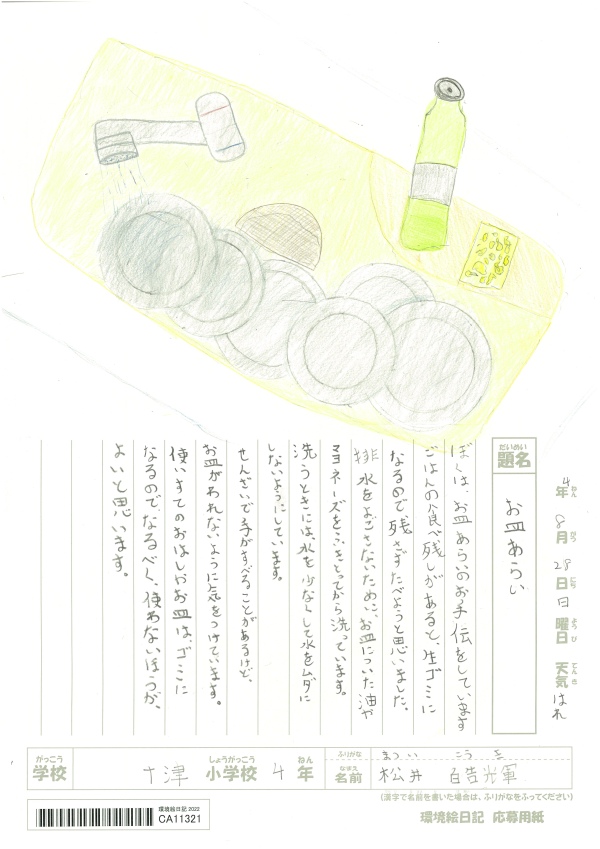 4年 8月 28日 日曜日 天気 はれ
ねん がつ にち ようび てんき
だいめい
題名
お皿あらい
ぼくは、お皿あらいのお手伝をしています
ごはんの食べ残しがあると、生ゴミに
なるので、残さずたべようと思いました。
排水をよごさないために、お皿についた油や
マヨネーズをふきとってから洗っています。
洗うときには、水を少なくして水をムダに
しないようにしています。
せんざいで手がすべることがあるけど、
お皿がわれないように気をつけています。
使いすてのおはしやお皿は、ゴミに
なるので、なるべく、使わないほうが、
よいと思います。
がっこう
学校
十津 小学校 4年
しょうがっこう ねん
ふりがな まつい こうき
なまえ
名前 松井
(漢字で名前を書いた場合は、ふりがなをふってください)
環境絵日記 2022
CA11321
環境絵日記 応募用紙